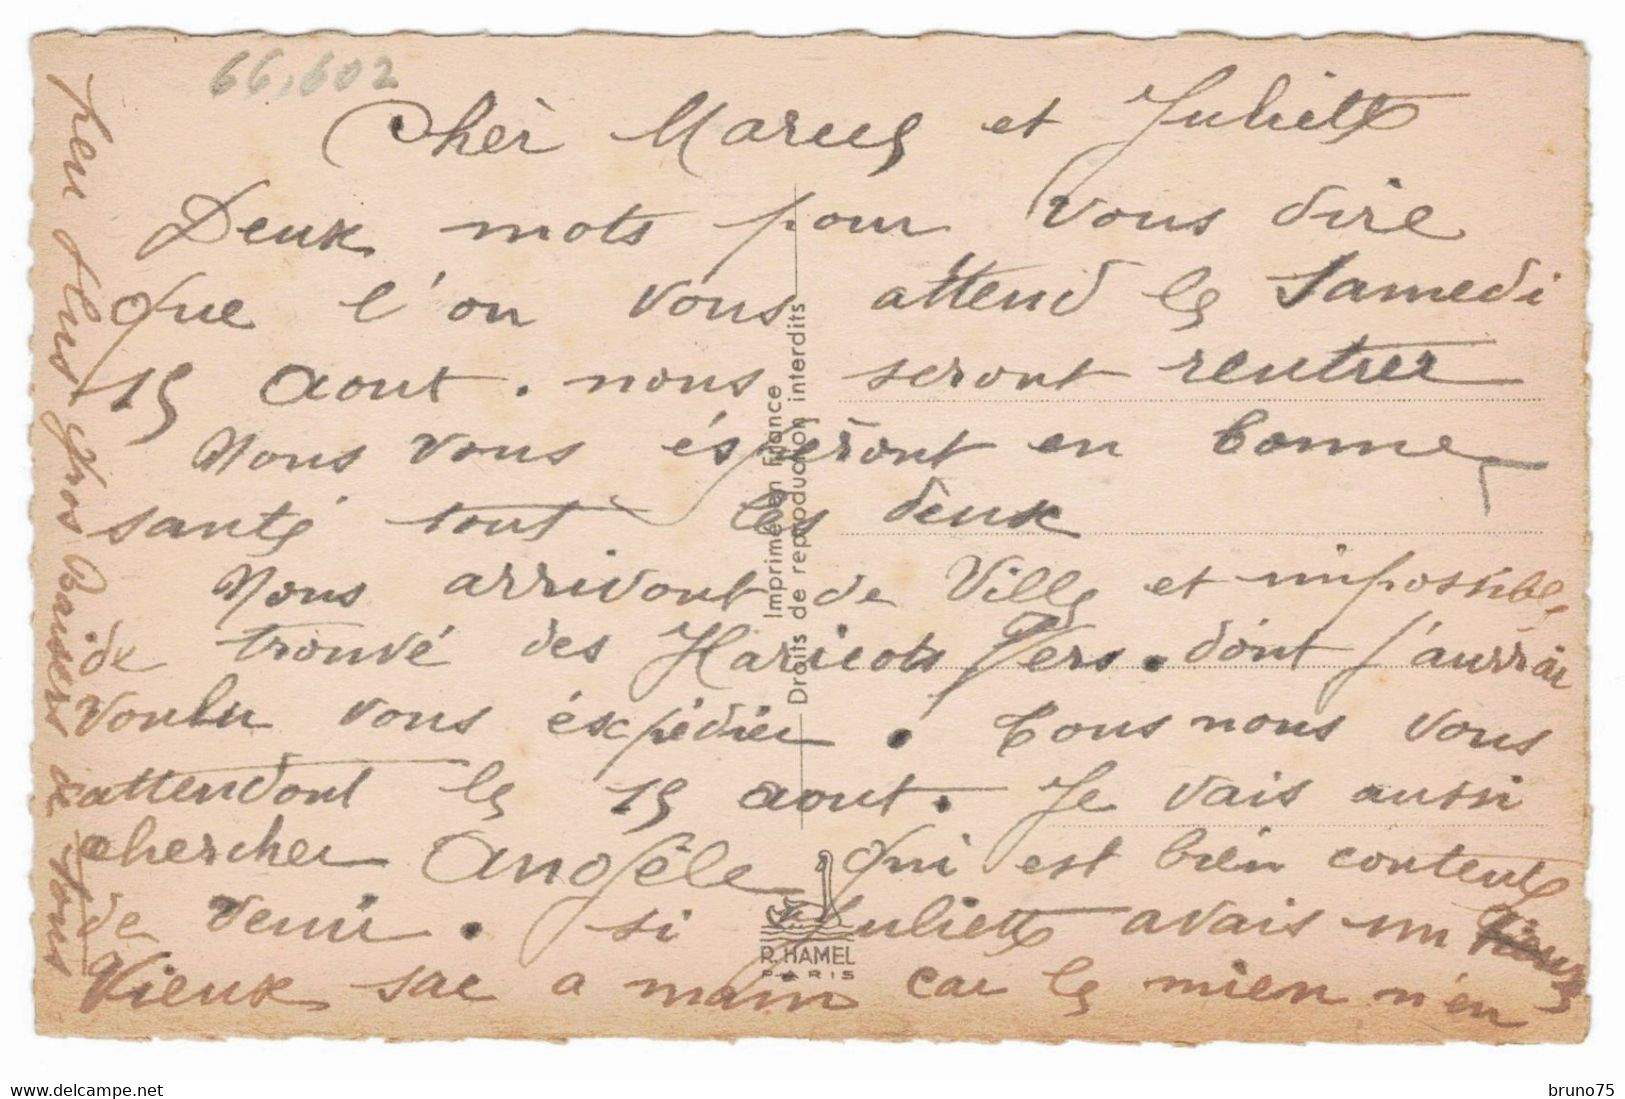 66,602
Cher Marcel et Juliette
Deux mots pour vous dire
que l'on vous attend le Samedi
15 aout. nous seront rentrer
Nous vous éspèront en bonne
santé tout les deux
Nous arrivont de Ville et impossible
de trouvé des Haricots Vers. dont j'aurrai
voulu vous éxpédier. Tous nous vous
attendont le 15 aout. Je vais aussi
chercher Angèle qui est bien contente
de venir. si Juliette avais un
vieux sac a main car le mien n'en
peu plus gros Baisers de tous
Imprimé en France
Droits de reproduction interdits
R. HAMEL
PARIS
delcampe.net
bruno75